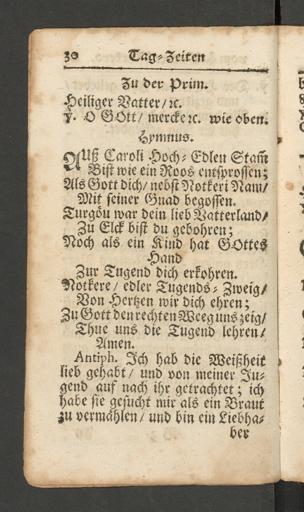 30 Tag-Zeiten
Zu der Prim.
Heiliger Vatter/ ꝛc.
℣. O GOtt/ mercke ꝛc. wie oben.
Hymnus.
AUß Caroli Hoch-Edlen Stam̃
Bist wie ein Roos entsprossen;
Als Gott dich/ nebst Notkeri Nam/
Mit seiner Gnad begossen.
Turgöu war dein lieb Vatterland/
Zu Elck bist du gebohren;
Noch als ein Kind hat GOttes
Hand
Zur Tugend dich erkohren.
Notkere/ edler Tugends-Zweig/
Von Hertzen wir dich ehren;
Zu Gott den rechten Weeg uns zeig/
Thue uns die Tugend lehren/
Amen.
Antiph. Ich hab die Weißheit
lieb gehabt/ und von meiner Ju-
gend auf nach ihr getrachtet; ich
habe sie gesucht mir als ein Braut
zu vermählen/ und bin ein Liebha-
ber